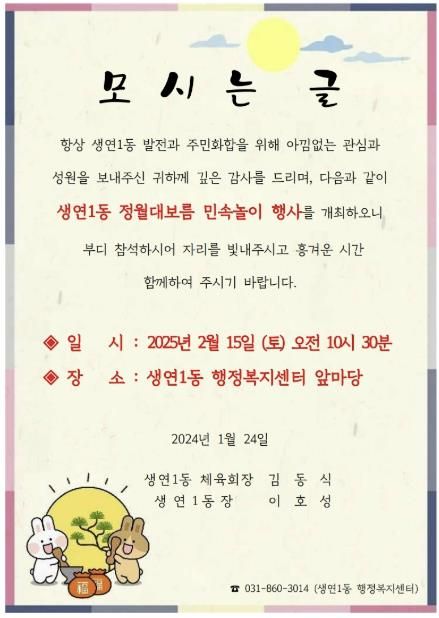 모시는 글
항상 생연1동 발전과 주민화합을 위해 아낌없는 관심과
성원을 보내주신 귀하께 깊은 감사를 드리며, 다음과 같이
생연1동 정월대보름 민속놀이 행사를 개최하오니
부디 참석하시어 자리를 빛내주시고 흥겨운 시간
함께하여 주시기 바랍니다.
◈ 일 시 : 2025년 2월 15일 (토) 오전 10시 30분
◈ 장 소 : 생연1동 행정복지센터 앞마당
2024년 1월 24일
생연1동 체육회장 김 동 식
생 연 1 동 장 이 호 성
福
☎ 031-860-3014 (생연1동 행정복지센터)